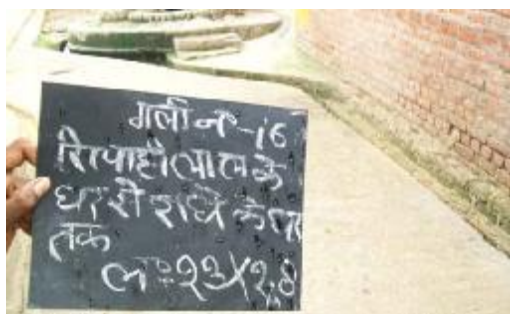 गली नं -16
सिपाही लाल के
घर से राधे के घर
तक
ल० २३X२.४